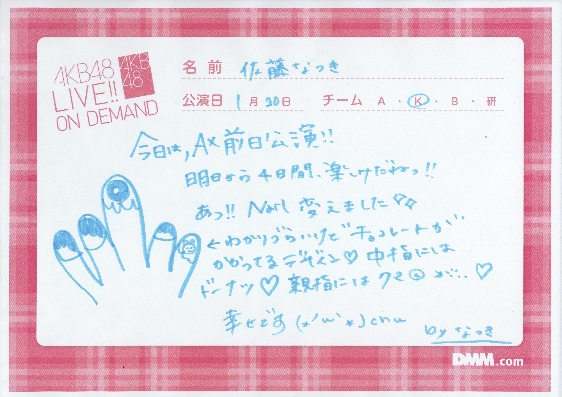 AKB48
LIVE!!
ON DEMAND
AKB
48
名前 佐藤なつき
公演日 1月20日 チーム A・K・B・研
今日は,AX前日公演!!
明日から4日間、楽しみだねっ!!
あっ!! Nail 変えました♡♡
←わかりづらいけどチョコレートが
かかってるデザイン♡ 中指には
ドーナツ♡ 親指にはクマ が..♡
幸せです
by なつき
DMM.com